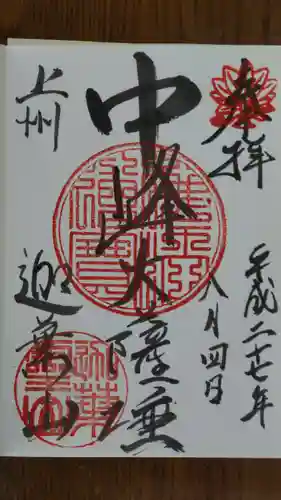 奉拝
平成二十七年
八月四日
中峰大薩埵
上州
迦葉山